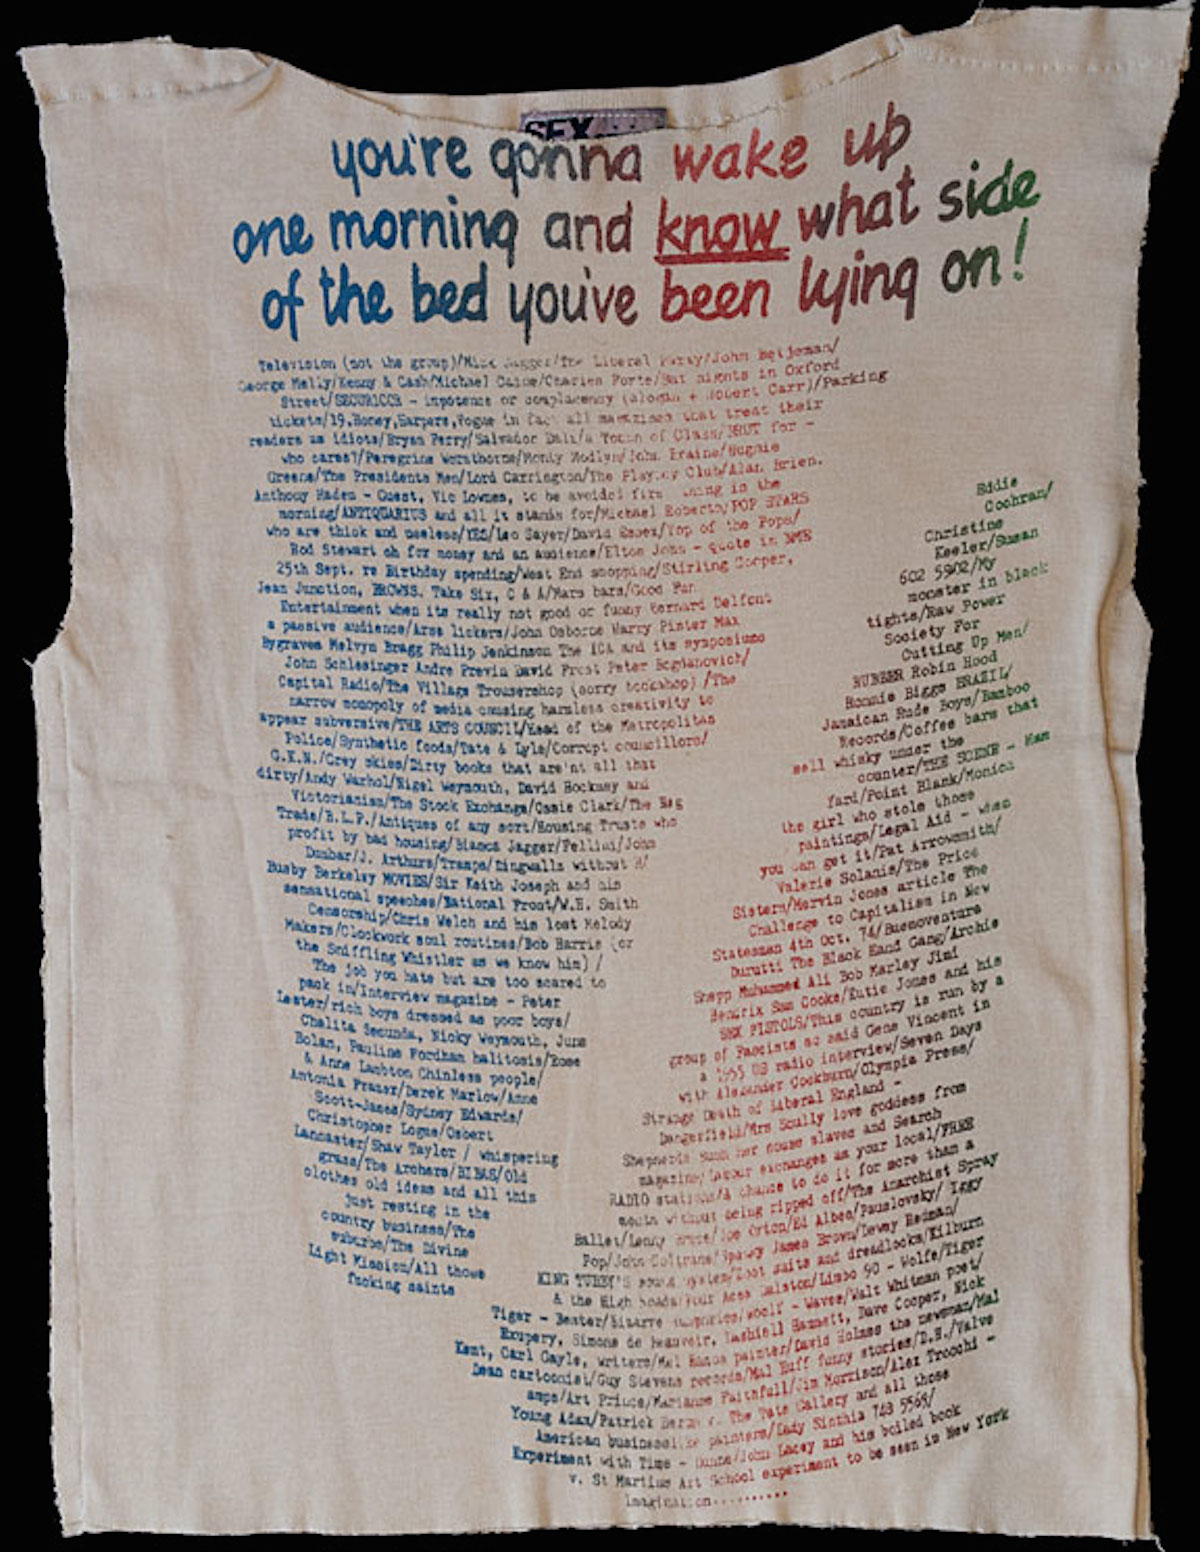 SEX
you're gonna wake up
one morning and know what side
of the bed you've been lying on!
Television (not the group)/Mick Jagger/The Liberal Party/John Betjeman/
George Melly/Kenny & Cash/Michael Caine/Charles Forte/Sat nights in Oxford
Street/SECURICOR - impotence or complacency (slogan + Robert Carr)/Parking
tickets/19,Honey,Harpers,Vogue in fact all magazines that treat their
readers as idiots/Bryan Ferry/Salvador Dali/a Touch of Class/BRUT for -
who cares?/Peregrine Worsthorne/Monty Modlyn/John Braine/Hughie
Greene/The Presidents Men/Lord Carrington/The Playboy Club/Alan Brien.
Anthony Haden - Guest, Vic Lownes, to be avoided first thing in the
morning/ANTIQUARIUS and all it stands for/Michael Roberts/POP STARS
who are thick and useless/YES/Leo Sayer/David Essex/Top of the Pops/
Rod Stewart oh for money and an audience/Elton John - quote in NME
25th Sept. re Birthday spending/West End shopping/Stirling Cooper,
Jean Junction, BROWNS, Take Six, C & A/Mars bars/Good Fun
Entertainment when its really not good or funny Bernard Delfont
a passive audience/Arse lickers/John Osborne Harry Pinter Max
Bygraves Melvyn Bragg Philip Jenkinson The ICA and its symposiums
John Schlesinger Andre Previn David Frost Peter Bogdanovich/
Capital Radio/The Village Trousershop (sorry bookshop) /The
narrow monopoly of media causing harmless creativity to
appear subversive/THE ARTS COUNCIL/Head of the Metropolitan
Police/Synthetic foods/Tate & Lyle/Corrupt councillors/
G.K.N./Grey skies/Dirty books that are'nt all that
dirty/Andy Warhol/Nigel Weymouth, David Hockney and
Victorianism/The Stock Exchange/Ossie Clark/The Rag
Trade/E.L.P./Antiques of any sort/Housing Trusts who
profit by bad housing/Bianca Jagger/Fellini/John
Dunbar/J. Arthurs/Tramps/Dingwalls without H/
Busby Berkeley MOVIES/Sir Keith Joseph and his
sensational speeches/National Front/W.H. Smith
Censorship/Chris Welch and his lost Melody
Makers/Clockwork soul routines/Bob Harris (or
the Sniffling Whistler as we know him) /
The job you hate but are too scared to
pack in/Interview magazine - Peter
Lester/rich boys dressed as poor boys/
Chelita Secunda, Nicky Weymouth, June
Bolan, Pauline Fordham halitosis/Rose
& Anne Lambton Chinless people/
Antonia Fraser/Derek Marlow/Anne
Scott-James/Sydney Edwards/
Christopher Logue/Osbert
Lancaster/Shaw Taylor / whispering
grass/The Archers/BIBAS/Old
clothes old ideas and all this
just resting in the
country business/The
suburbs/The Divine
Light Mission/All those
fucking saints
Eddie
Cochran/
Christine
Keeler/Susan
602 5902/My
monster in black
tights/Raw Power
Society For
Cutting Up Men/
RUBBER Robin Hood
Ronnie Biggs BRAZIL/
Jamaican Rude Boys/Bamboo
Records/Coffee bars that
sell whisky under the
counter/THE SCENE - Ham
Yard/Point Blank/Monica
the girl who stole those
paintings/Legal Aid - when
you can get it/Pat Arrowsmith/
Valerie Solanis/The Price
Sisters/Mervin Jones article The
Challenge to Capitalism in New
Statesman 4th Oct. 74/Buenoventura
Durutti The Black Hand Gang/Archie
Shepp Muhammed Ali Bob Marley Jimi
Hendrix Sam Cooke/Kutie Jones and his
SEX PISTOLS/This country is run by a
group of Fascists so said Gene Vincent in
a 1955 US radio interview/Seven Days
with Alexander Cockburn/Olympia Press/
Strange Death of Liberal England -
Dangerfield/Mrs Scully love goddess from
Shepherds Bush her house slaves and Search
magazine/Labour exchanges as your local/FREE
RADIO stations/A chance to do it for more than a
month without being ripped off/The Anarchist Spray
Ballet/Lenny Bruce/Joe Orton/Ed Albee/Pauslovsky/ Iggy
Pop/John Coltrane/Spawky James Brown/Dewey Redman/
KING TUBBY'S sound system/Zoot suits and dreadlocks/Kilburn
& the High Roads/Four Aces Dalston/Limbo 90 - Wolfe/Tiger
Tiger - Bester/Bizarre Humphries/Woolf - Waves/Walt Whitman poet/
Exupery, Simone de Beauvoir, Dashiell Hammett, Dave Cooper, Nick
Kent, Carl Gayle, writers/Mal painter/David Holmes the newsman/Mal
Dean cartoonist/Guy Stevens records/Mal Huff funny stories/D.H./Valve
amps/Art Prince/Marianne Faithfull/Jim Morrison/Alex Trocchi -
Young Adam/Patrick v. The Tate Gallery and all those
American businesslike painters/Lady Sinthia 748 5565/
Experiment with Time - Dunne/John Lacey and his boiled book
v. St Martins Art School experiment to be seen in New York
Imagination..........